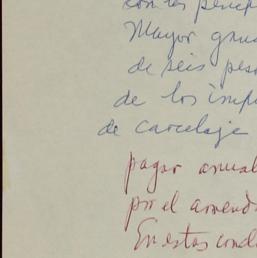 con los
Mayor
de seis pes
de los imp
de carcelaje
pagar anual
por el arrend
En estas cond